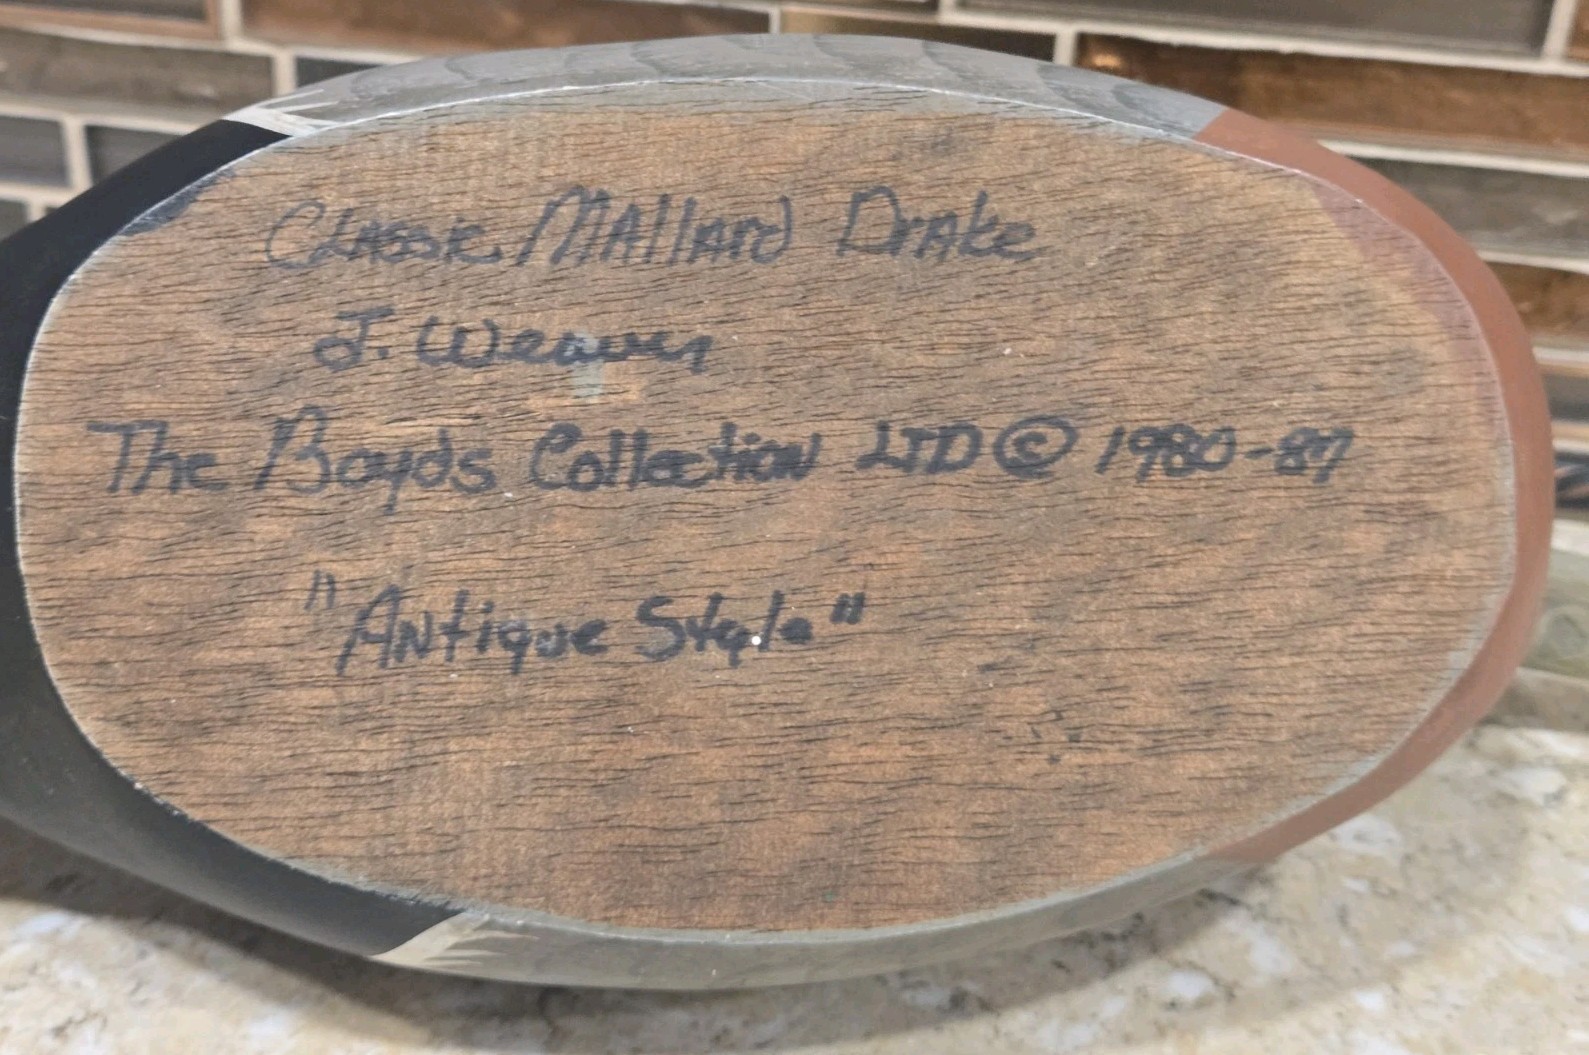 Classic Mallard Drake
J. Weaver
The Boyds Collection LTD © 1980-87
"Antique Style"